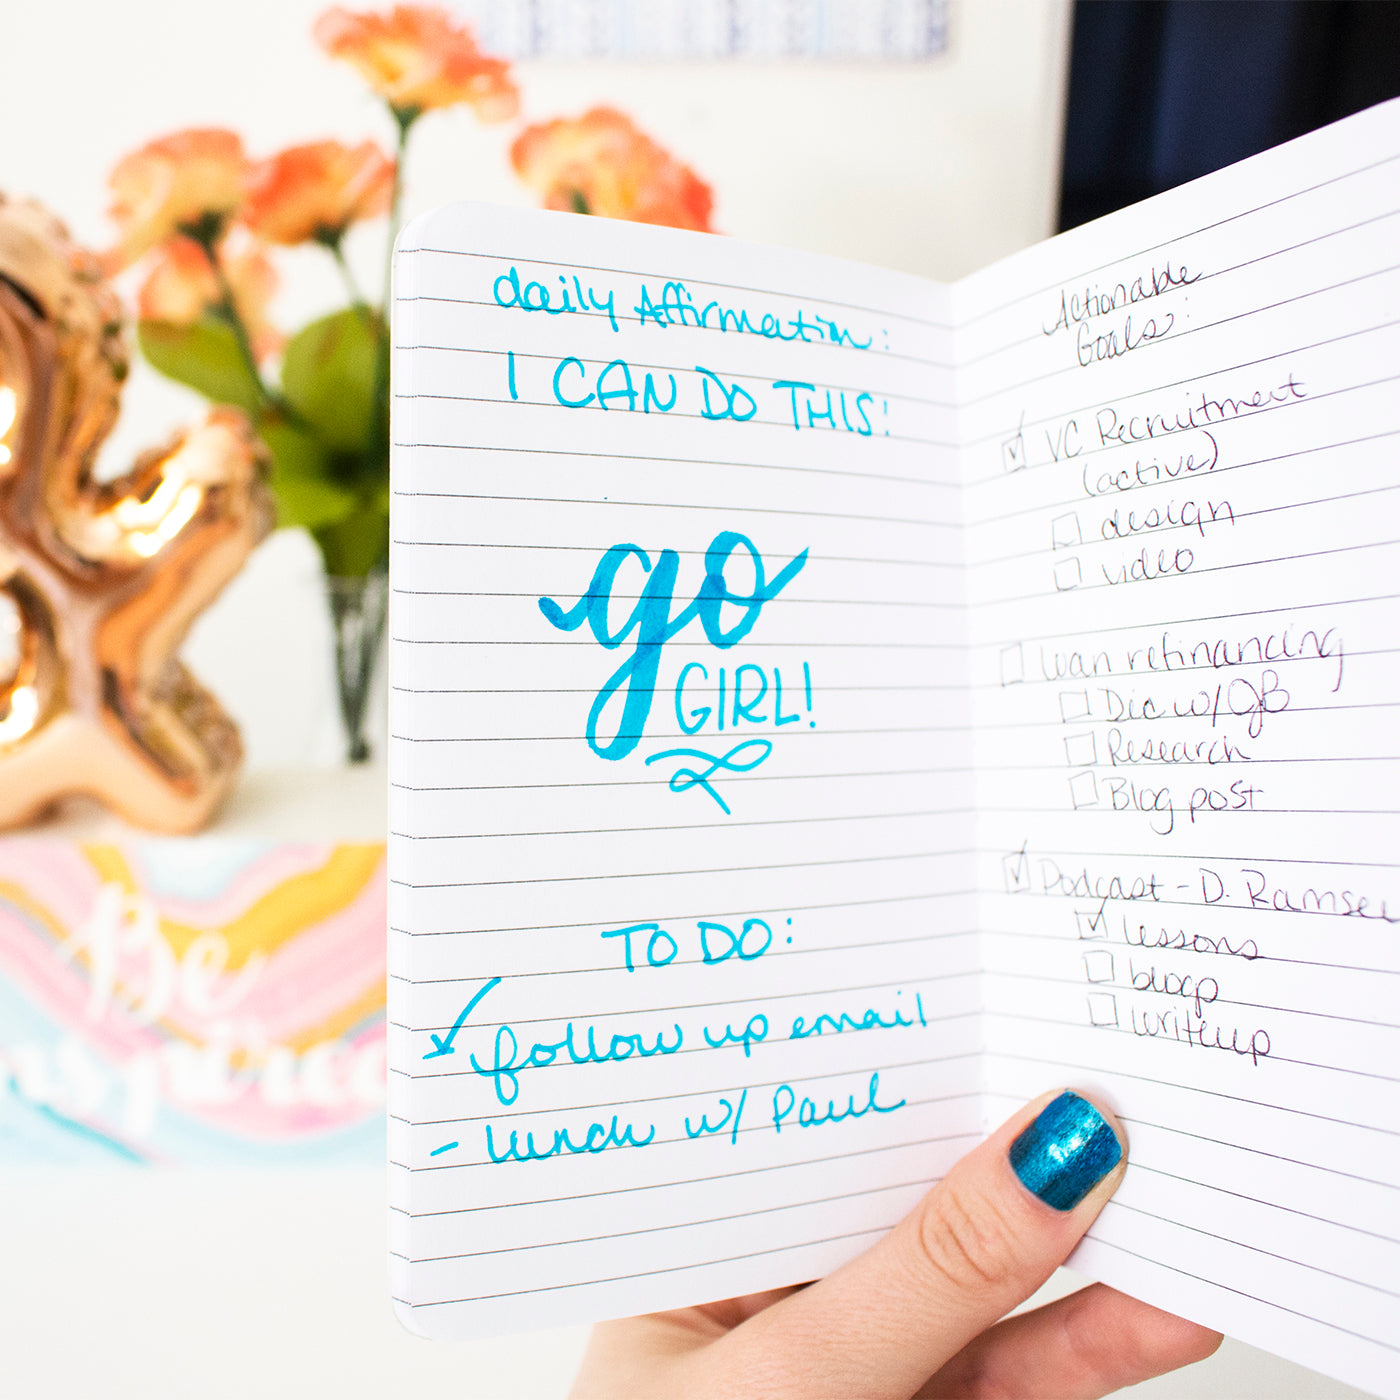 daily Affirmation:
I CAN DO THIS!
go
GIRL!
TO DO:
follow up email
- lunch w/ Paul
Actionable
Goals:
VC Recruitment
(active)
design
video
loan refinancing
Disc w/ JB
Research
Blog post
Podcast - D. Ramsey
lessons
writeup
Be